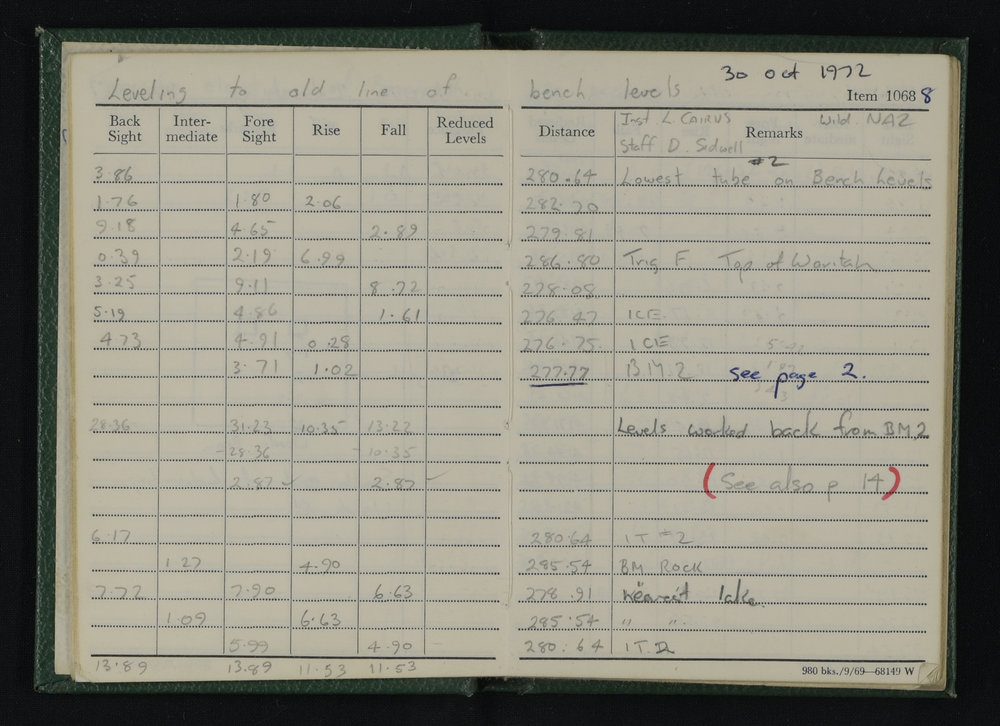 30 Oct 1972
Leveling to old line of bench levels
Item 1068 8
Back Sight Inter-mediate Fore Sight Rise Fall Reduced Levels Distance Remarks
Inst L. Cairns Wild NA2
Staff D. Sidwell
#2
3.86 280.64 Lowest tube on Bench Levels
1.76 1.80 2.06 282.70
9.18 4.65 2.89 279.81
0.39 2.19 6.99 286.80 Trig F. Top of
3.25 9.11 8.72 278.08
5.19 4.86 1.61 276.47 ICE
4.73 4.91 0.28 276.75 ICE
3.71 1.02 277.77 B.M.2 See page 2.
28.36 31.23 10.35 13.22 Levels worked back from BM2
-28.36 -10.35
2.87 ✓ 2.87 ✓ (See also p 14)
6.17 280.64 IT #2
1.27 4.90 285.54 BM Rock
7.72 7.90 6.63 278.91 nearest lake.
1.09 6.63 285.54 " "
5.99 4.90 – 280.64 IT.2
13.89 13.89 11.53 11.53
980 bks./9/69—68149 W